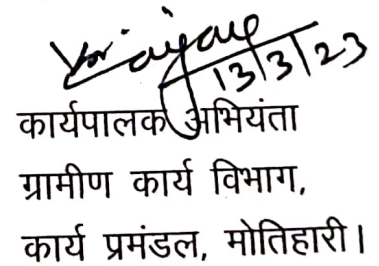 13/3/23
कार्यपालक अभियंता
ग्रामीण कार्य विभाग,
कार्य प्रमंडल, मोतिहारी।